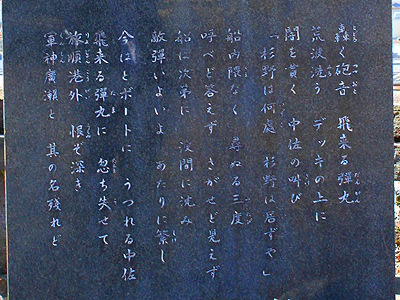 轟く砲音 飛来る彈丸
荒波洗う デッキの上に
闇を貫く 中佐の叫び
「杉野は何處 杉野は居ずや」
船内隈なく 尋ぬる三度
呼べど答えず さがせど見えず
船は次第に 波間に沈み
敵彈いよいよ あたりに繁し
今はとボートに うつれる中佐
飛来る彈丸に 忽ち失せて
旅順港外 恨ぞ深き
軍神廣瀬と 其の名残れど